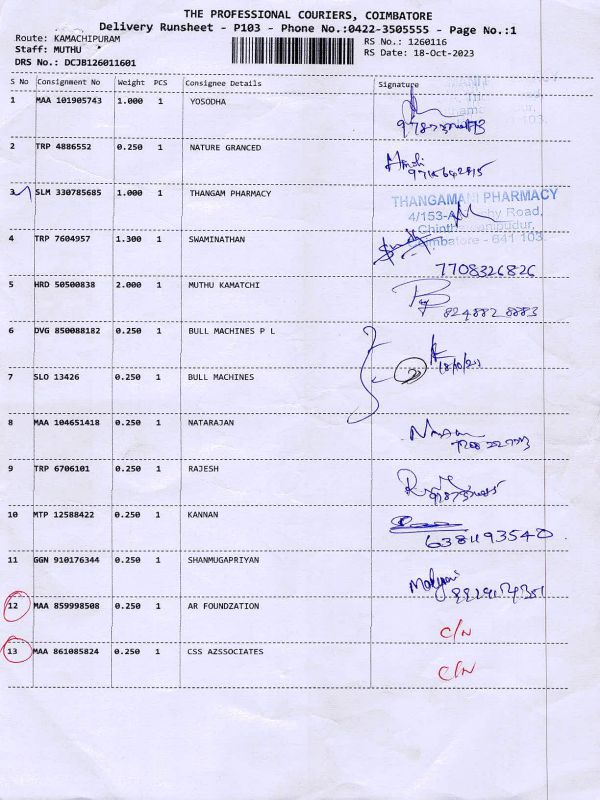 THE PROFESSIONAL COURIERS, COIMBATORE
Delivery Runsheet - P103 - Phone No.:0422-3505555 - Page No.:1
Route: KAMACHIPURAM RS No.: 1260116
Staff: MUTHU RS Date: 18-Oct-2023
DRS No.: DCJB126011601
S No Consignment No Weight PCS Consignee Details Signature
1 MAA 101905743 1.000 1 YOSODHA
2 TRP 4886552 0.250 1 NATURE GRANCED
3 SLM 330785685 1.000 1 THANGAM PHARMACY
THANGAMANI PHARMACY
4/153-A, Road,
Coimbatore - 641 103.
4 TRP 7604957 1.300 1 SWAMINATHAN
7708326826
5 HRD 50500838 2.000 1 MUTHU KAMATCHI
824882 8883
6 DVG 850088182 0.250 1 BULL MACHINES P L
7 SLO 13426 0.250 1 BULL MACHINES
8 MAA 104651418 0.250 1 NATARAJAN
9 TRP 6706101 0.250 1 RAJESH
10 MTP 12588422 0.250 1 KANNAN
6381193540
11 GGN 910176344 0.250 1 SHANMUGAPRIYAN
12 MAA 859998508 0.250 1 AR FOUNDZATION
C/N
13 MAA 861085824 0.250 1 CSS AZSSOCIATES
C/N